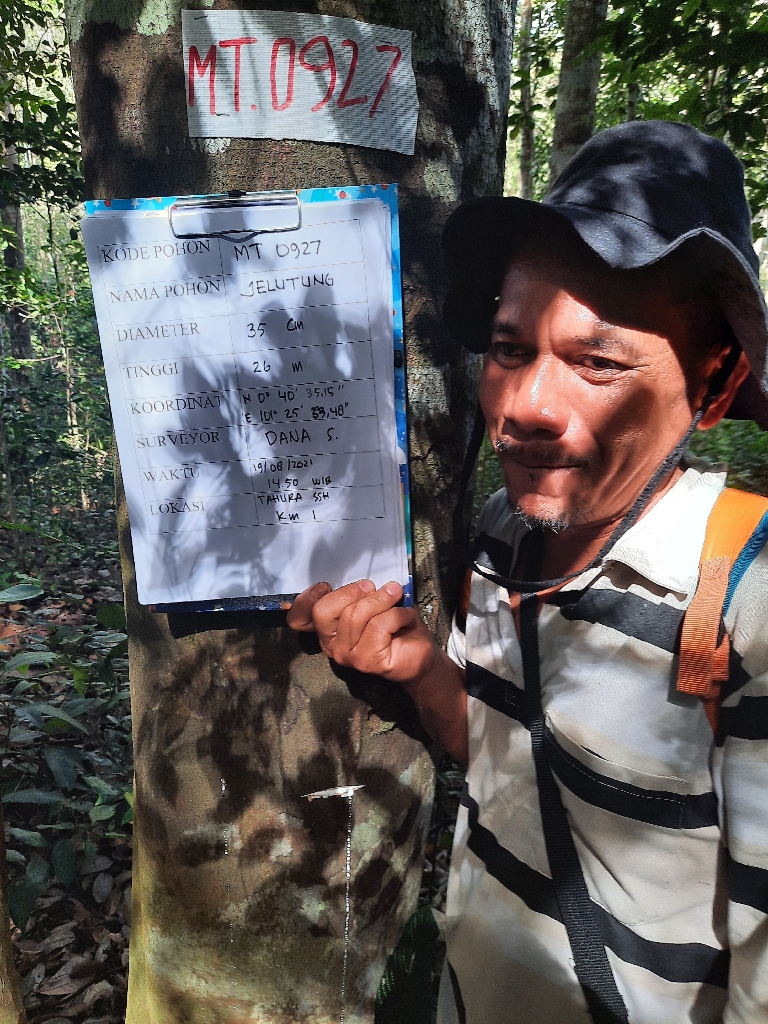 MT.0927
KODE POHON MT 0927
NAMA POHON JELUTUNG
DIAMETER 35 Cm
TINGGI 26 m
KOORDINAT N 0° 40' 35,15"
E 101° 25' 33,48"
SURVEYOR DANA S.
WAKTU 19/08/2021
14.50 WIB
LOKASI TAHURA SSH
Km 1